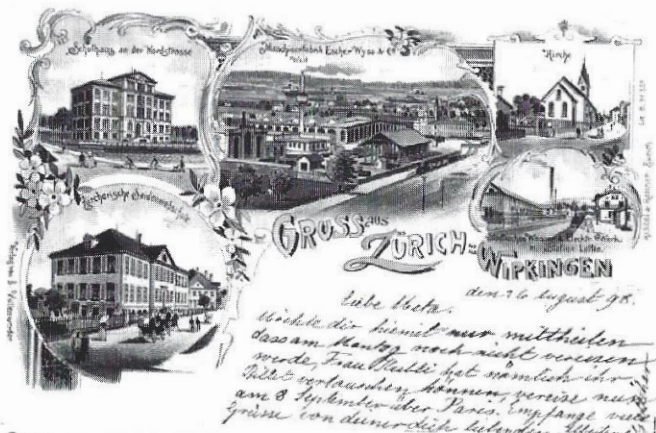 Schulhaus an der Nordstrasse
Maschinenfabrik Escher Wyss & Cie
Kirche
Zürcherische Seidenwebschule
GRUSS aus
ZÜRICH=
WIPKINGEN
den 26 August 98.
Liebe Meta.
Möchte dir hiemit nur mittheilen
dass am Montag noch nicht verreisen
werde, Frau hat nämlich ihr
Billet vertauschen können, verreise nun
am 8 September über Paris. Empfange viele
Grüsse von deiner dich liebenden